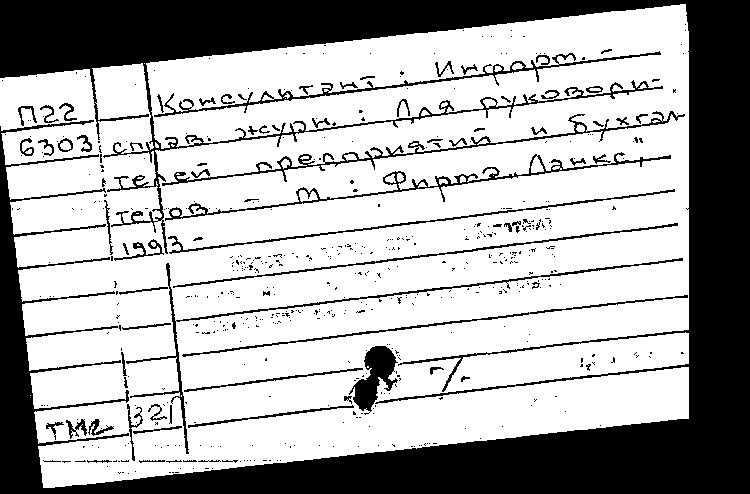 П22 Консультант : Информ. -
6303 справ. журн. : Для руководи-
телей предприятий и бухгал
теров. - М. : Фирма „Ланкс",
1993 -
-/-
ТМ2 321